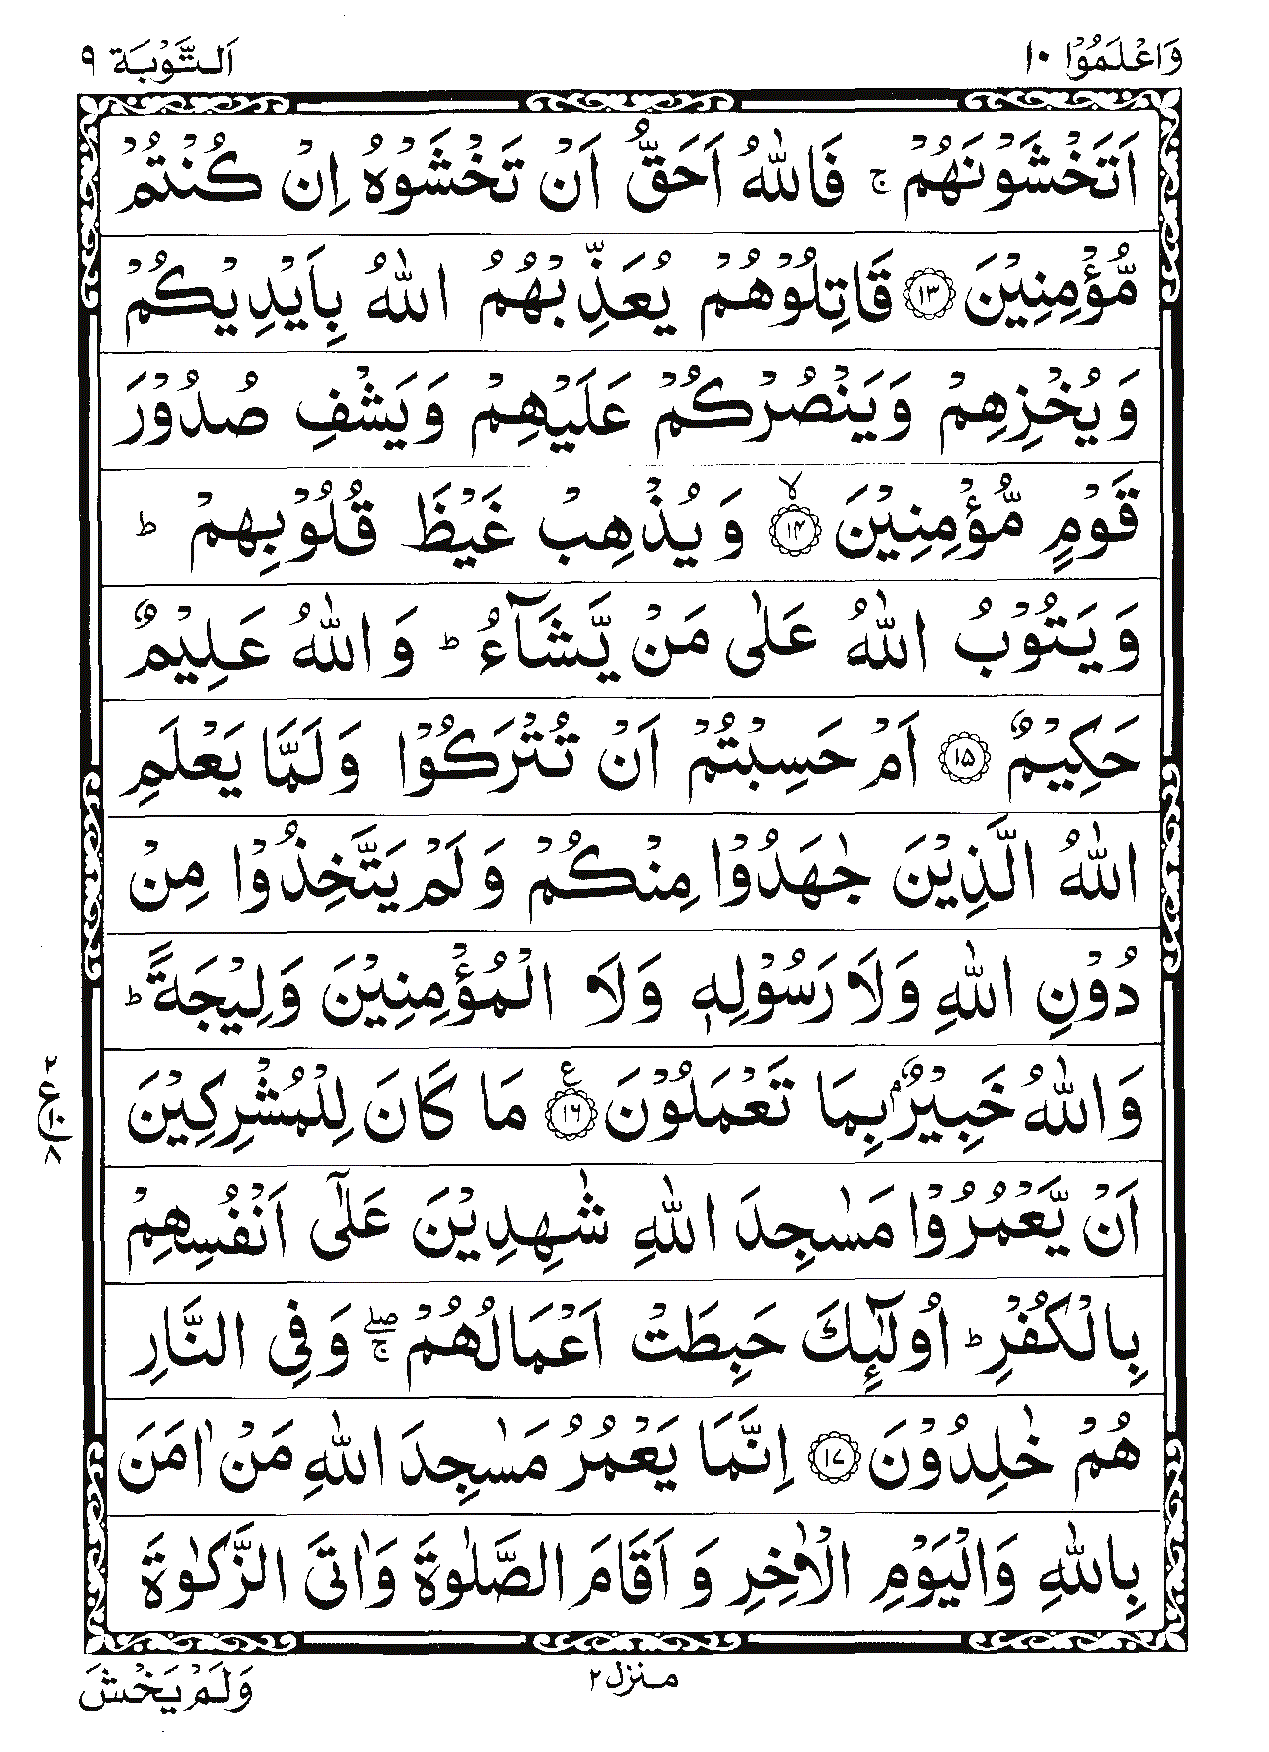 وَاعْلَمُوْۤا ١٠
اَلتَّوْبَة ٩
اَتَخْشَوْنَهُمْ ۚ فَاللّٰهُ اَحَقُّ اَنْ تَخْشَوْهُ اِنْ كُنْتُمْ
مُّؤْمِنِيْنَ ﴿١٣﴾ قَاتِلُوْهُمْ يُعَذِّبْهُمُ اللّٰهُ بِاَيْدِيْكُمْ
وَيُخْزِهِمْ وَيَنْصُرْكُمْ عَلَيْهِمْ وَيَشْفِ صُدُوْرَ
قَوْمٍ مُّؤْمِنِيْنَ ﴿١٤﴾ۙ وَيُذْهِبْ غَيْظَ قُلُوْبِهِمْ ؕ
وَيَتُوْبُ اللّٰهُ عَلٰى مَنْ يَّشَآءُ ؕ وَاللّٰهُ عَلِيْمٌ
حَكِيْمٌ ﴿١٥﴾ اَمْ حَسِبْتُمْ اَنْ تُتْرَكُوْا وَلَمَّا يَعْلَمِ
اللّٰهُ الَّذِيْنَ جٰهَدُوْا مِنْكُمْ وَلَمْ يَتَّخِذُوْا مِنْ
دُوْنِ اللّٰهِ وَلَا رَسُوْلِهٖ وَلَا الْمُؤْمِنِيْنَ وَلِيْجَةً ؕ
وَاللّٰهُ خَبِيْرٌۢ بِمَا تَعْمَلُوْنَ ﴿١٦﴾ ع مَا كَانَ لِلْمُشْرِكِيْنَ
٢ ع ١٠ ٨
اَنْ يَّعْمُرُوْا مَسٰجِدَ اللّٰهِ شٰهِدِيْنَ عَلٰٓى اَنْفُسِهِمْ
بِالْكُفْرِ ؕ اُولٰٓئِكَ حَبِطَتْ اَعْمَالُهُمْ ۖۚ وَفِى النَّارِ
هُمْ خٰلِدُوْنَ ﴿١٧﴾ اِنَّمَا يَعْمُرُ مَسٰجِدَ اللّٰهِ مَنْ اٰمَنَ
بِاللّٰهِ وَالْيَوْمِ الْاٰخِرِ وَ اَقَامَ الصَّلٰوةَ وَاٰتَى الزَّكٰوةَ
منزل ٢
وَلَمْ يَخْشَ